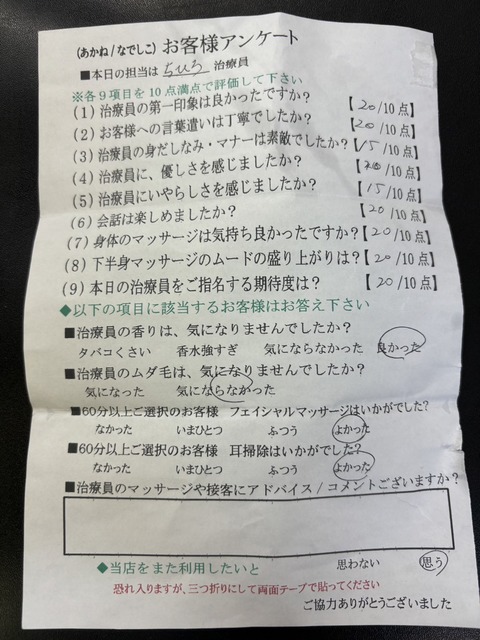 (あかね/なでしこ) お客様アンケート
■本日の担当は ちひろ 治療員
※各9項目を10点満点で評価して下さい
(1) 治療員の第一印象は良かったですか? 【20/10点】
(2) お客様への言葉遣いは丁寧でしたか? 【20/10点】
(3) 治療員の身だしなみ・マナーは素敵でしたか? 【15/10点】
(4) 治療員に、優しさを感じましたか? 【20/10点】
(5) 治療員にいやらしさを感じましたか? 【15/10点】
(6) 会話は楽しめましたか? 【20/10点】
(7) 身体のマッサージは気持ち良かったですか? 【20/10点】
(8) 下半身マッサージのムードの盛り上がりは? 【20/10点】
(9) 本日の治療員をご指名する期待度は? 【20/10点】
◆以下の項目に該当するお客様はお答え下さい
■治療員の香りは、気になりませんでしたか?
タバコくさい 香水強すぎ 気にならなかった 良かった
■治療員のムダ毛は、気になりませんでしたか?
気になった 気にならなかった
■60分以上ご選択のお客様 フェイシャルマッサージはいかがでした?
なかった いまひとつ ふつう よかった
■60分以上ご選択のお客様 耳掃除はいかがでした?
なかった いまひとつ ふつう よかった
■治療員のマッサージや接客にアドバイス/コメントございますか?
◆当店をまた利用したいと 思わない 思う
恐れ入りますが、三つ折りにして両面テープで貼ってください
ご協力ありがとうございました